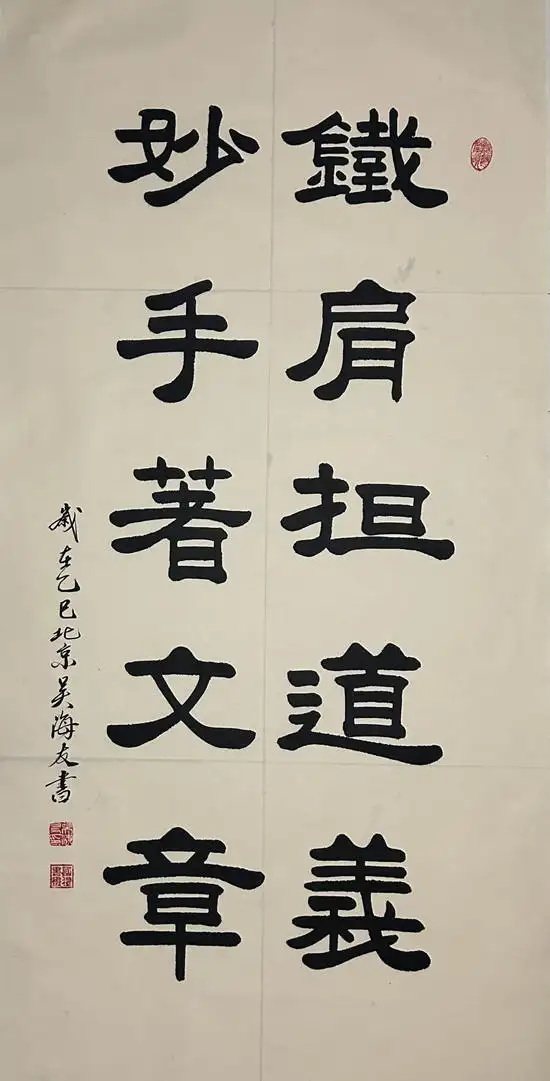 鐵肩担道義
妙手著文章
歲在乙巳北京吴海友書